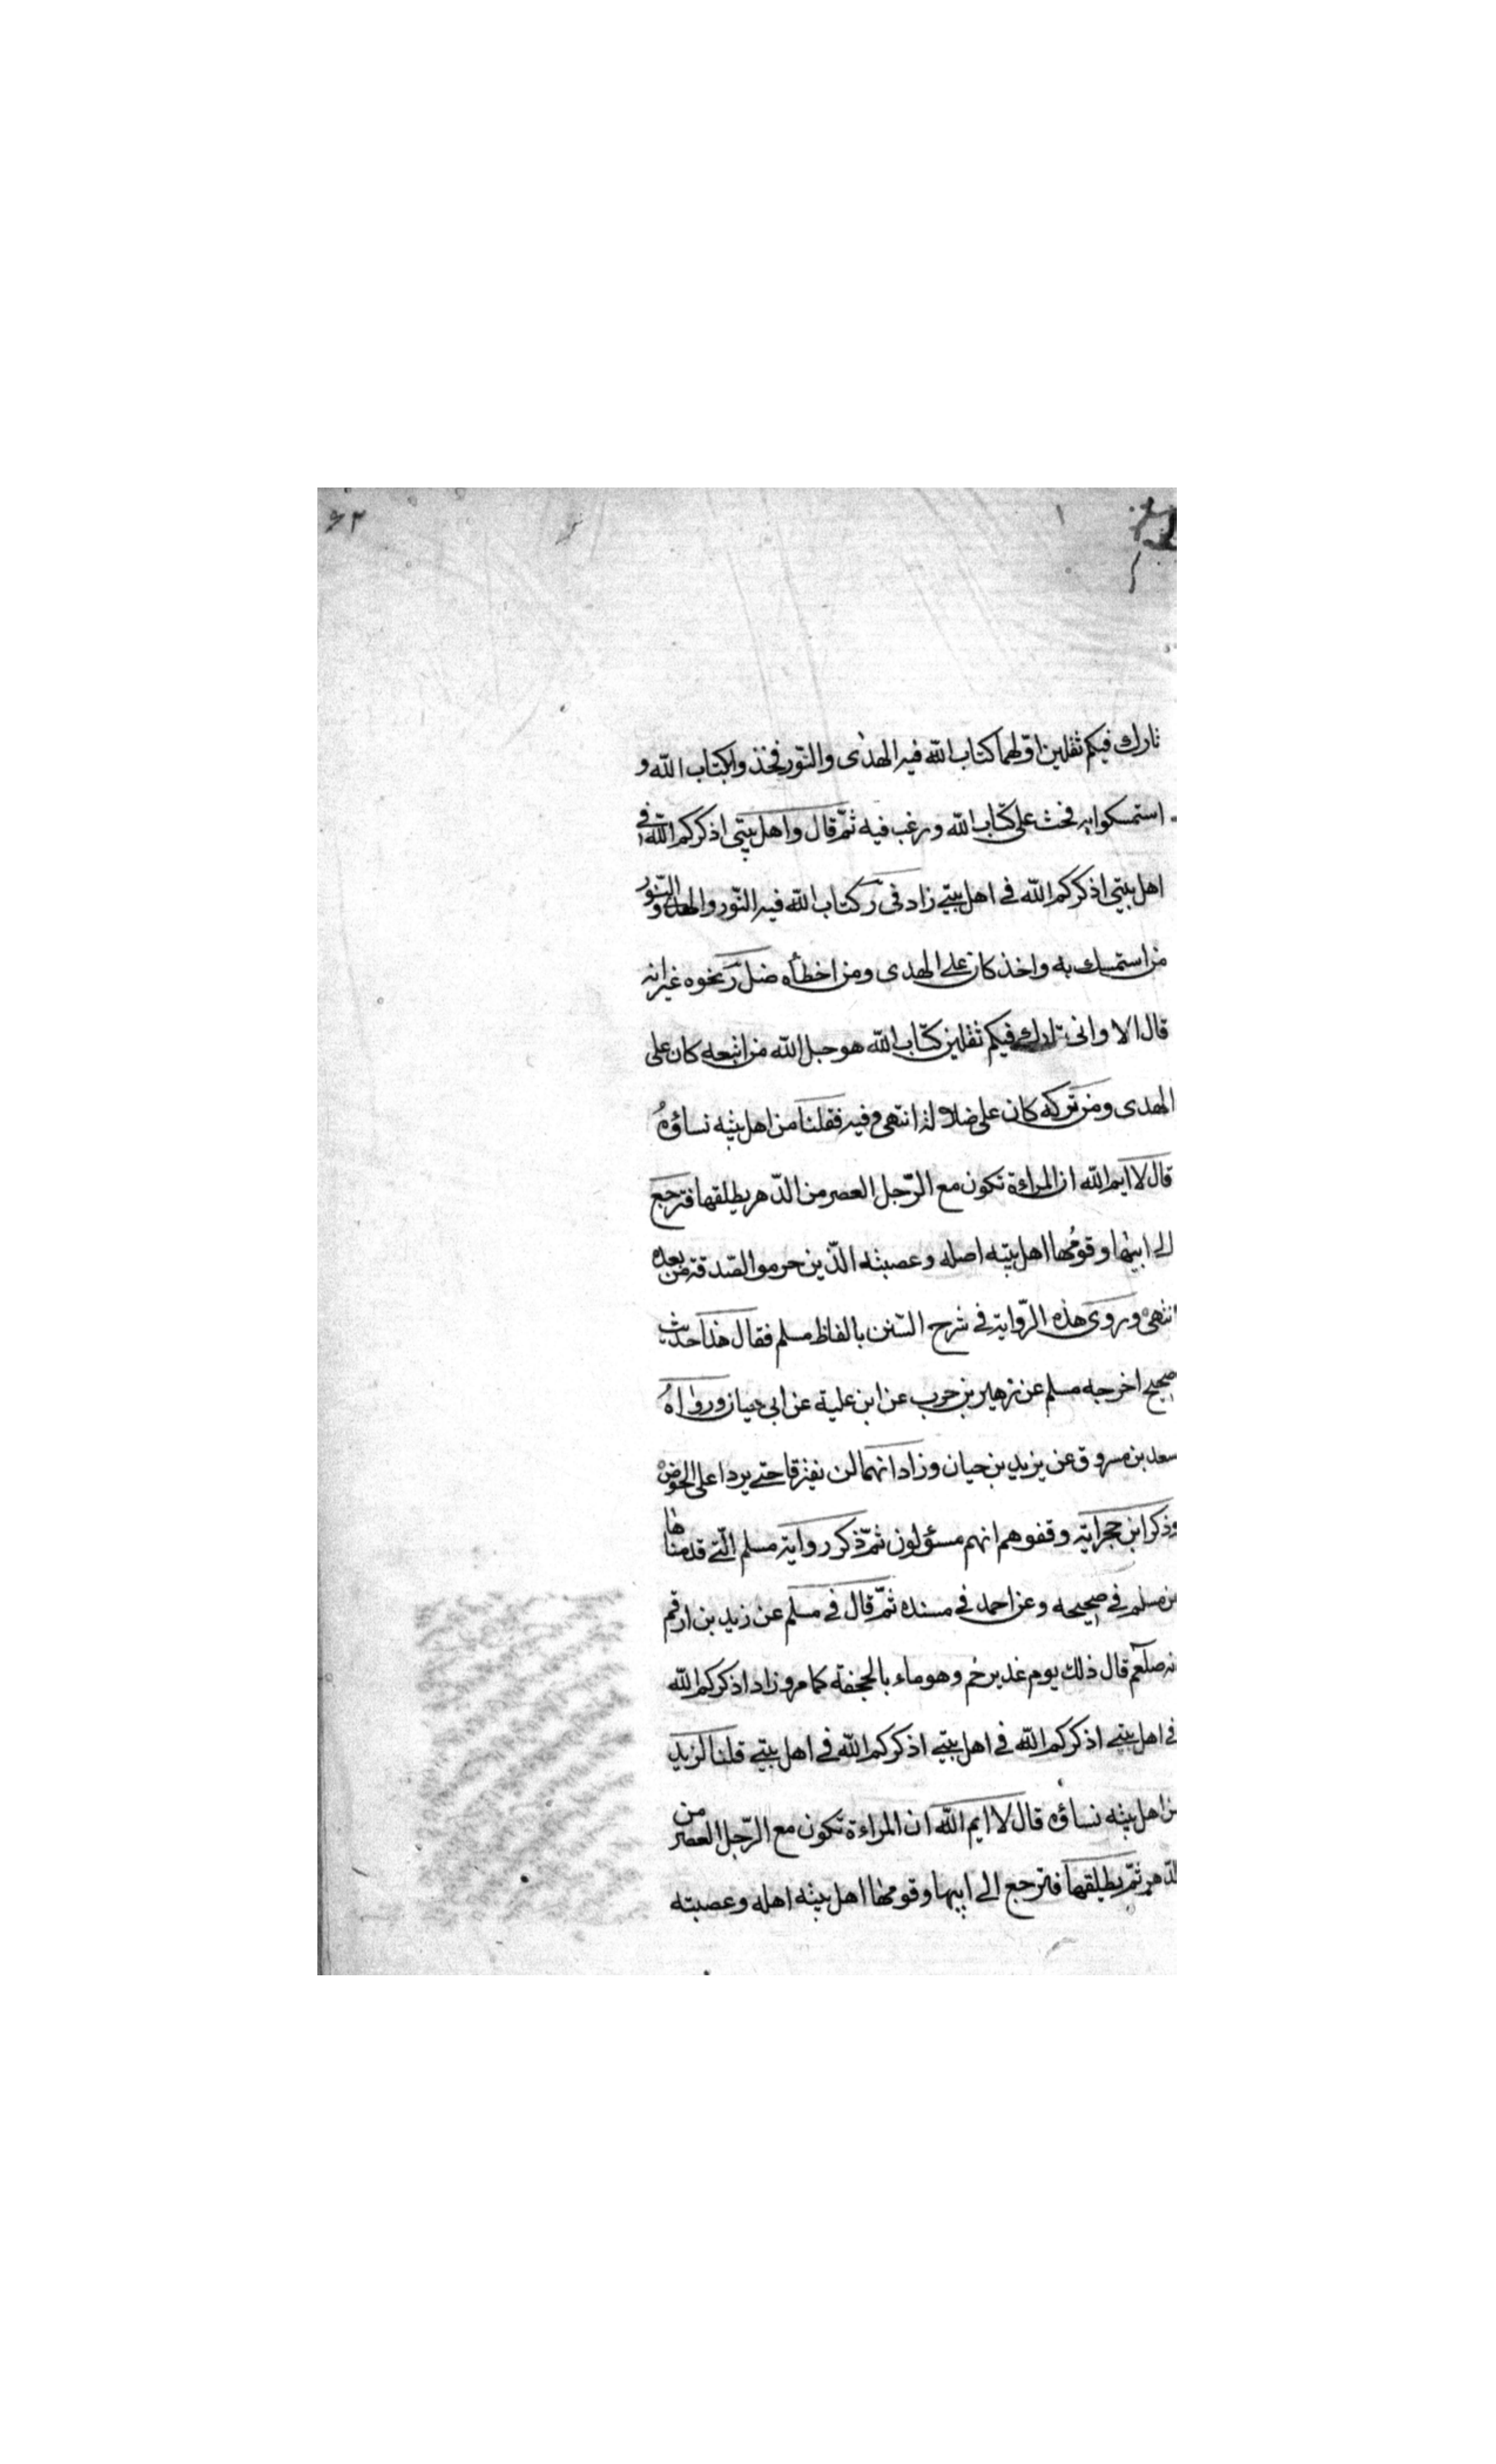 ٦٢
تارك فيكم ثقلين اوّلهما كتاب الله فيه الهدى والنّور فخذوا بكتاب الله و
استمسكوا به فحث على كتاب الله ورغب فيه ثمّ قال واهل بيتى اذكركم الله فى
اهل بيتى اذكركم الله فى اهل بيتى زاد فى ر كتاب الله فيه النّور والهدى و
من استمسك به واخذ كان على الهدى ومن اخطأه ضل ر نحوه غير انه
قال الا وانى تارك فيكم ثقلين كتاب الله هو حبل الله من اتبعه كان على
الهدى ومن تركه كان على ضلالة انتهى وفيه فقلنا من اهل بيته نساؤه
قال لا ايم الله ان المراءة تكون مع الرّجل العصر من الدّهر يطلقها فترجع
الى ابيها وقومها اهل بيته اصله وعصبته الّذين حرموا الصّدقة من بعده
انتهى وروى هذه الرّواية فى شرح السّنن بالفاظ مسلم فقال هذا حديث
صحيح اخرجه مسلم عن زهير بن حرب عن ابن علية عن ابى حيان ورواه
سعد بن مسروق عن يزيد بن حيان وزاد انهما لن يفترقا حتى يردا على الحوض
وذكر ابن حجر اية وقفوهم انهم مسؤلون ثمّ ذكر رواية مسلم الّتى قدمناها
من مسلم فى صحيحه وعن احمد فى مسنده ثمّ قال فى مسلم عن زيد بن ارقم
نه صلعم قال ذلك يوم غدير خم وهو ماء بالجحفة كما مر وزاد اذكركم الله
فى اهل بيتى اذكركم الله فى اهل بيتى اذكركم الله فى اهل بيتى قلنا لزيد
من اهل بيته نساؤه قال لا ايم الله ان المراءة تكون مع الرّجل العصر من
الدّهر ثمّ يطلقها فترجع الى ابيها وقومها اهل بيته اهله وعصبته